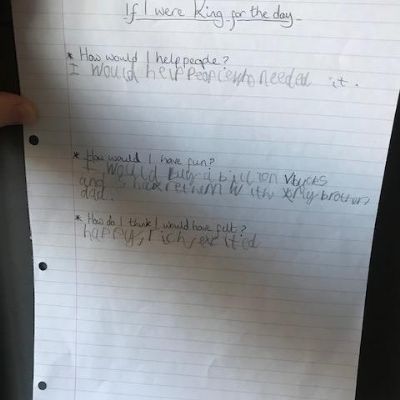 If I were King for the day.
* How would I help people?
I would help People who needed it.
* How would I have fun?
I would buy a billion Vbucts
and share them with my brothers
dad.
* How do I think I would have felt?
happy, rich, excited